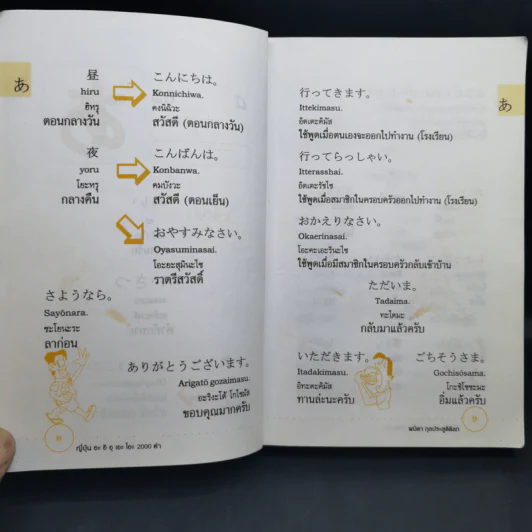 あ
昼
hiru
ฮิหรุ
ตอนกลางวัน
こんにちは。
Konnichiwa.
คงนิฉิวะ
สวัสดี (ตอนกลางวัน)
夜
yoru
โยะหรุ
กลางคืน
こんばんは。
Konbanwa.
คมบังวะ
สวัสดี (ตอนเย็น)
おやすみなさい。
Oyasuminasai.
โอะยะสุมินะไซ
ราตรีสวัสดิ์
さようなら。
Sayōnara.
ซะโยนะระ
ลาก่อน
ありがとうございます。
Arigatō gozaimasu.
อะริงะโต้ โกไซมัส
ขอบคุณมากครับ
ญี่ปุ่น อะ อิ อุ เอะ โอะ 2000 คำ
あ
行ってきます。
Ittekimasu.
อิตเตะคิมัส
ใช้พูดเมื่อตนเองจะออกไปทำงาน (โรงเรียน)
行ってらっしゃい。
Itterasshai.
อิตเตะรัชไช
ใช้พูดเมื่อสมาชิกในครอบครัวออกไปทำงาน (โรงเรียน)
おかえりなさい。
Okaerinasai.
โอะคะเอะรินะไซ
ใช้พูดเมื่อมีสมาชิกในครอบครัวกลับเข้าบ้าน
ただいま。
Tadaima.
ทะไดมะ
กลับมาแล้วครับ
いただきます。
Itadakimasu.
อิทะดะคิมัส
ทานล่ะนะครับ
ごちそうさま。
Gochisōsama.
โกะชิโซซะมะ
อิ่มแล้วครับ